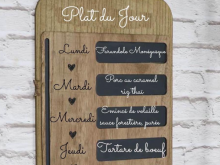 Plat du Jour
Lundi
Farandole Mauresque
Mardi
Porc au caramel
riz thaï
Mercredi
Emincé de volaille
sauce forestière, purée
Jeudi
Tartare de boeuf